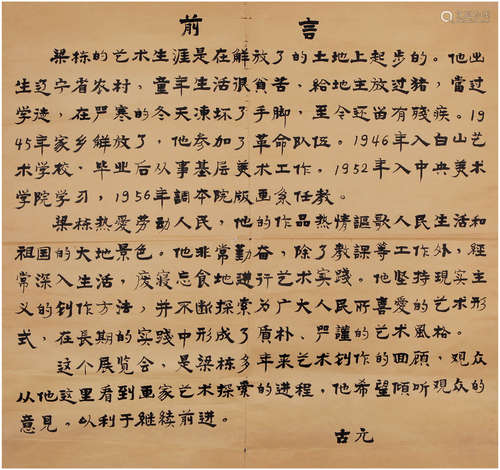 前言
梁栋的艺术生涯是在鮮放了的土地上起步的。他出
生辽宁省农村，童年生活很貧苦、给地主放过猪，當过
学徒，在严寒的冬天凍坏了手脚，至今还留有残疾。19
45年家乡鮮放了，他参加了革命队伍。1946年入白山艺
术学校，毕业后从事基层美术工作。1952年入中央美术
学院学习，1956年調本院版画系任教。
梁栋热愛劳动人民，他的作品热情謳歌人民生活和
祖国的大地景色。他非常勤奋，除了教課等工作外，經
常深入生活，废寝忘食地進行艺术实践。他坚持現实主
义的创作方法，并不断探索为广大人民所喜愛的艺术形
式，在長期的实践中形成了质朴、謹的艺术風格。
这个展览会，是梁栋多年来艺术创作的回顧，观众
从他这里看到画家艺术探索的進程，他希望傾听观众的
意见，以利于继续前進。
古元